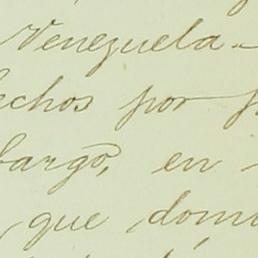 Venezuela -
echos por
bargo, en
que dom